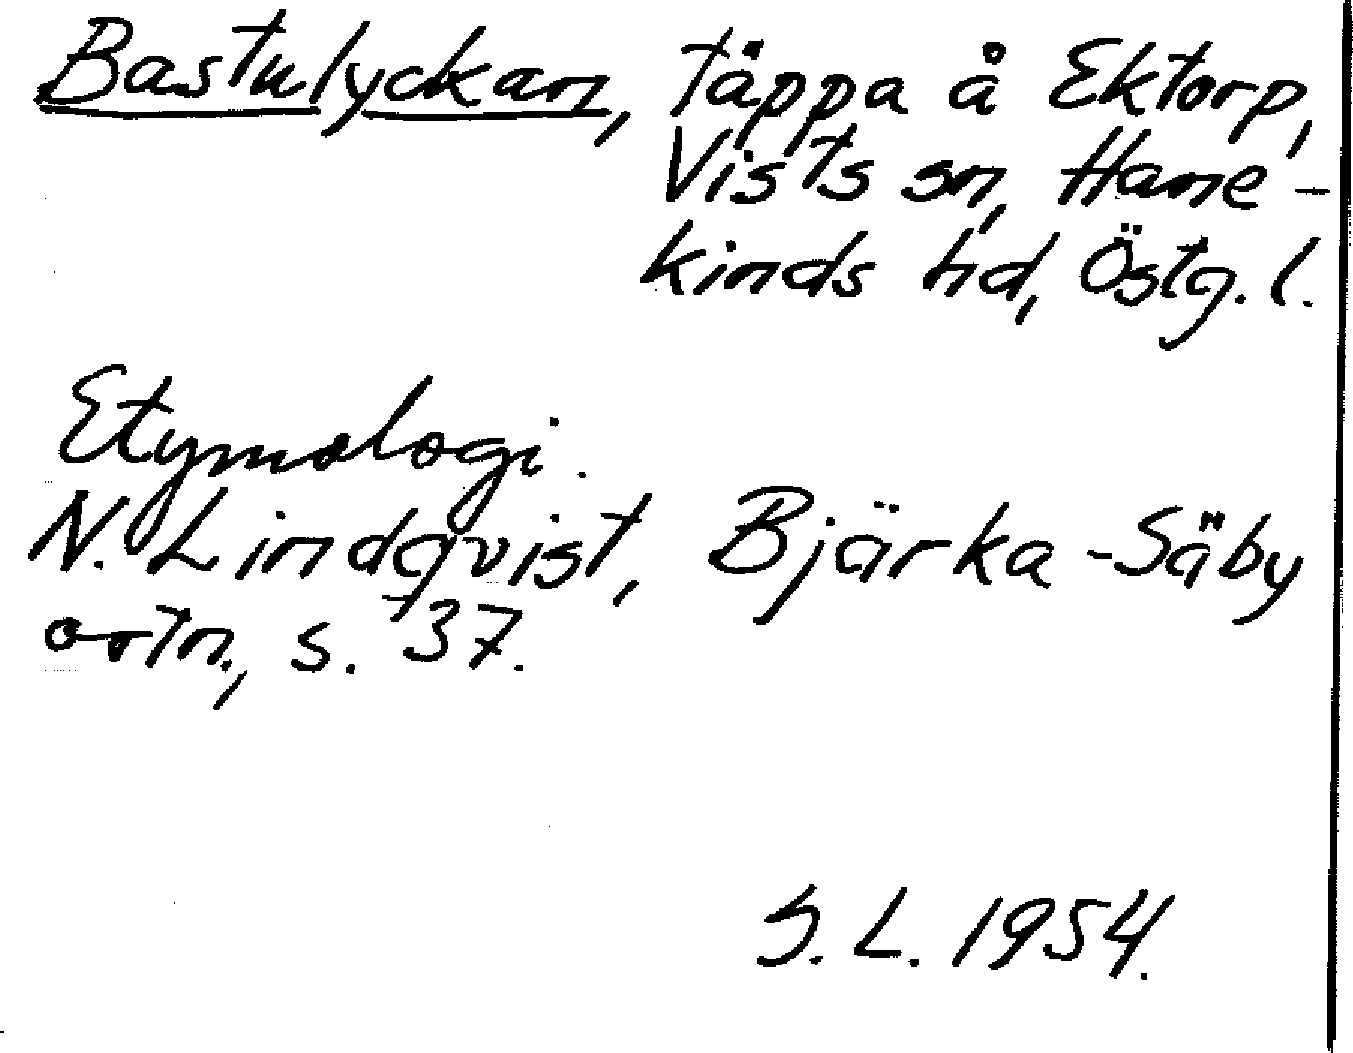 Bastulyckan, täppa å Ektorp,
Vists sn, Hane-
kinds hd, Östg. l.
Etymologi.
N. Lindqvist, Bjärka-Säby
ortn., s. 37.
S. L. 1954.